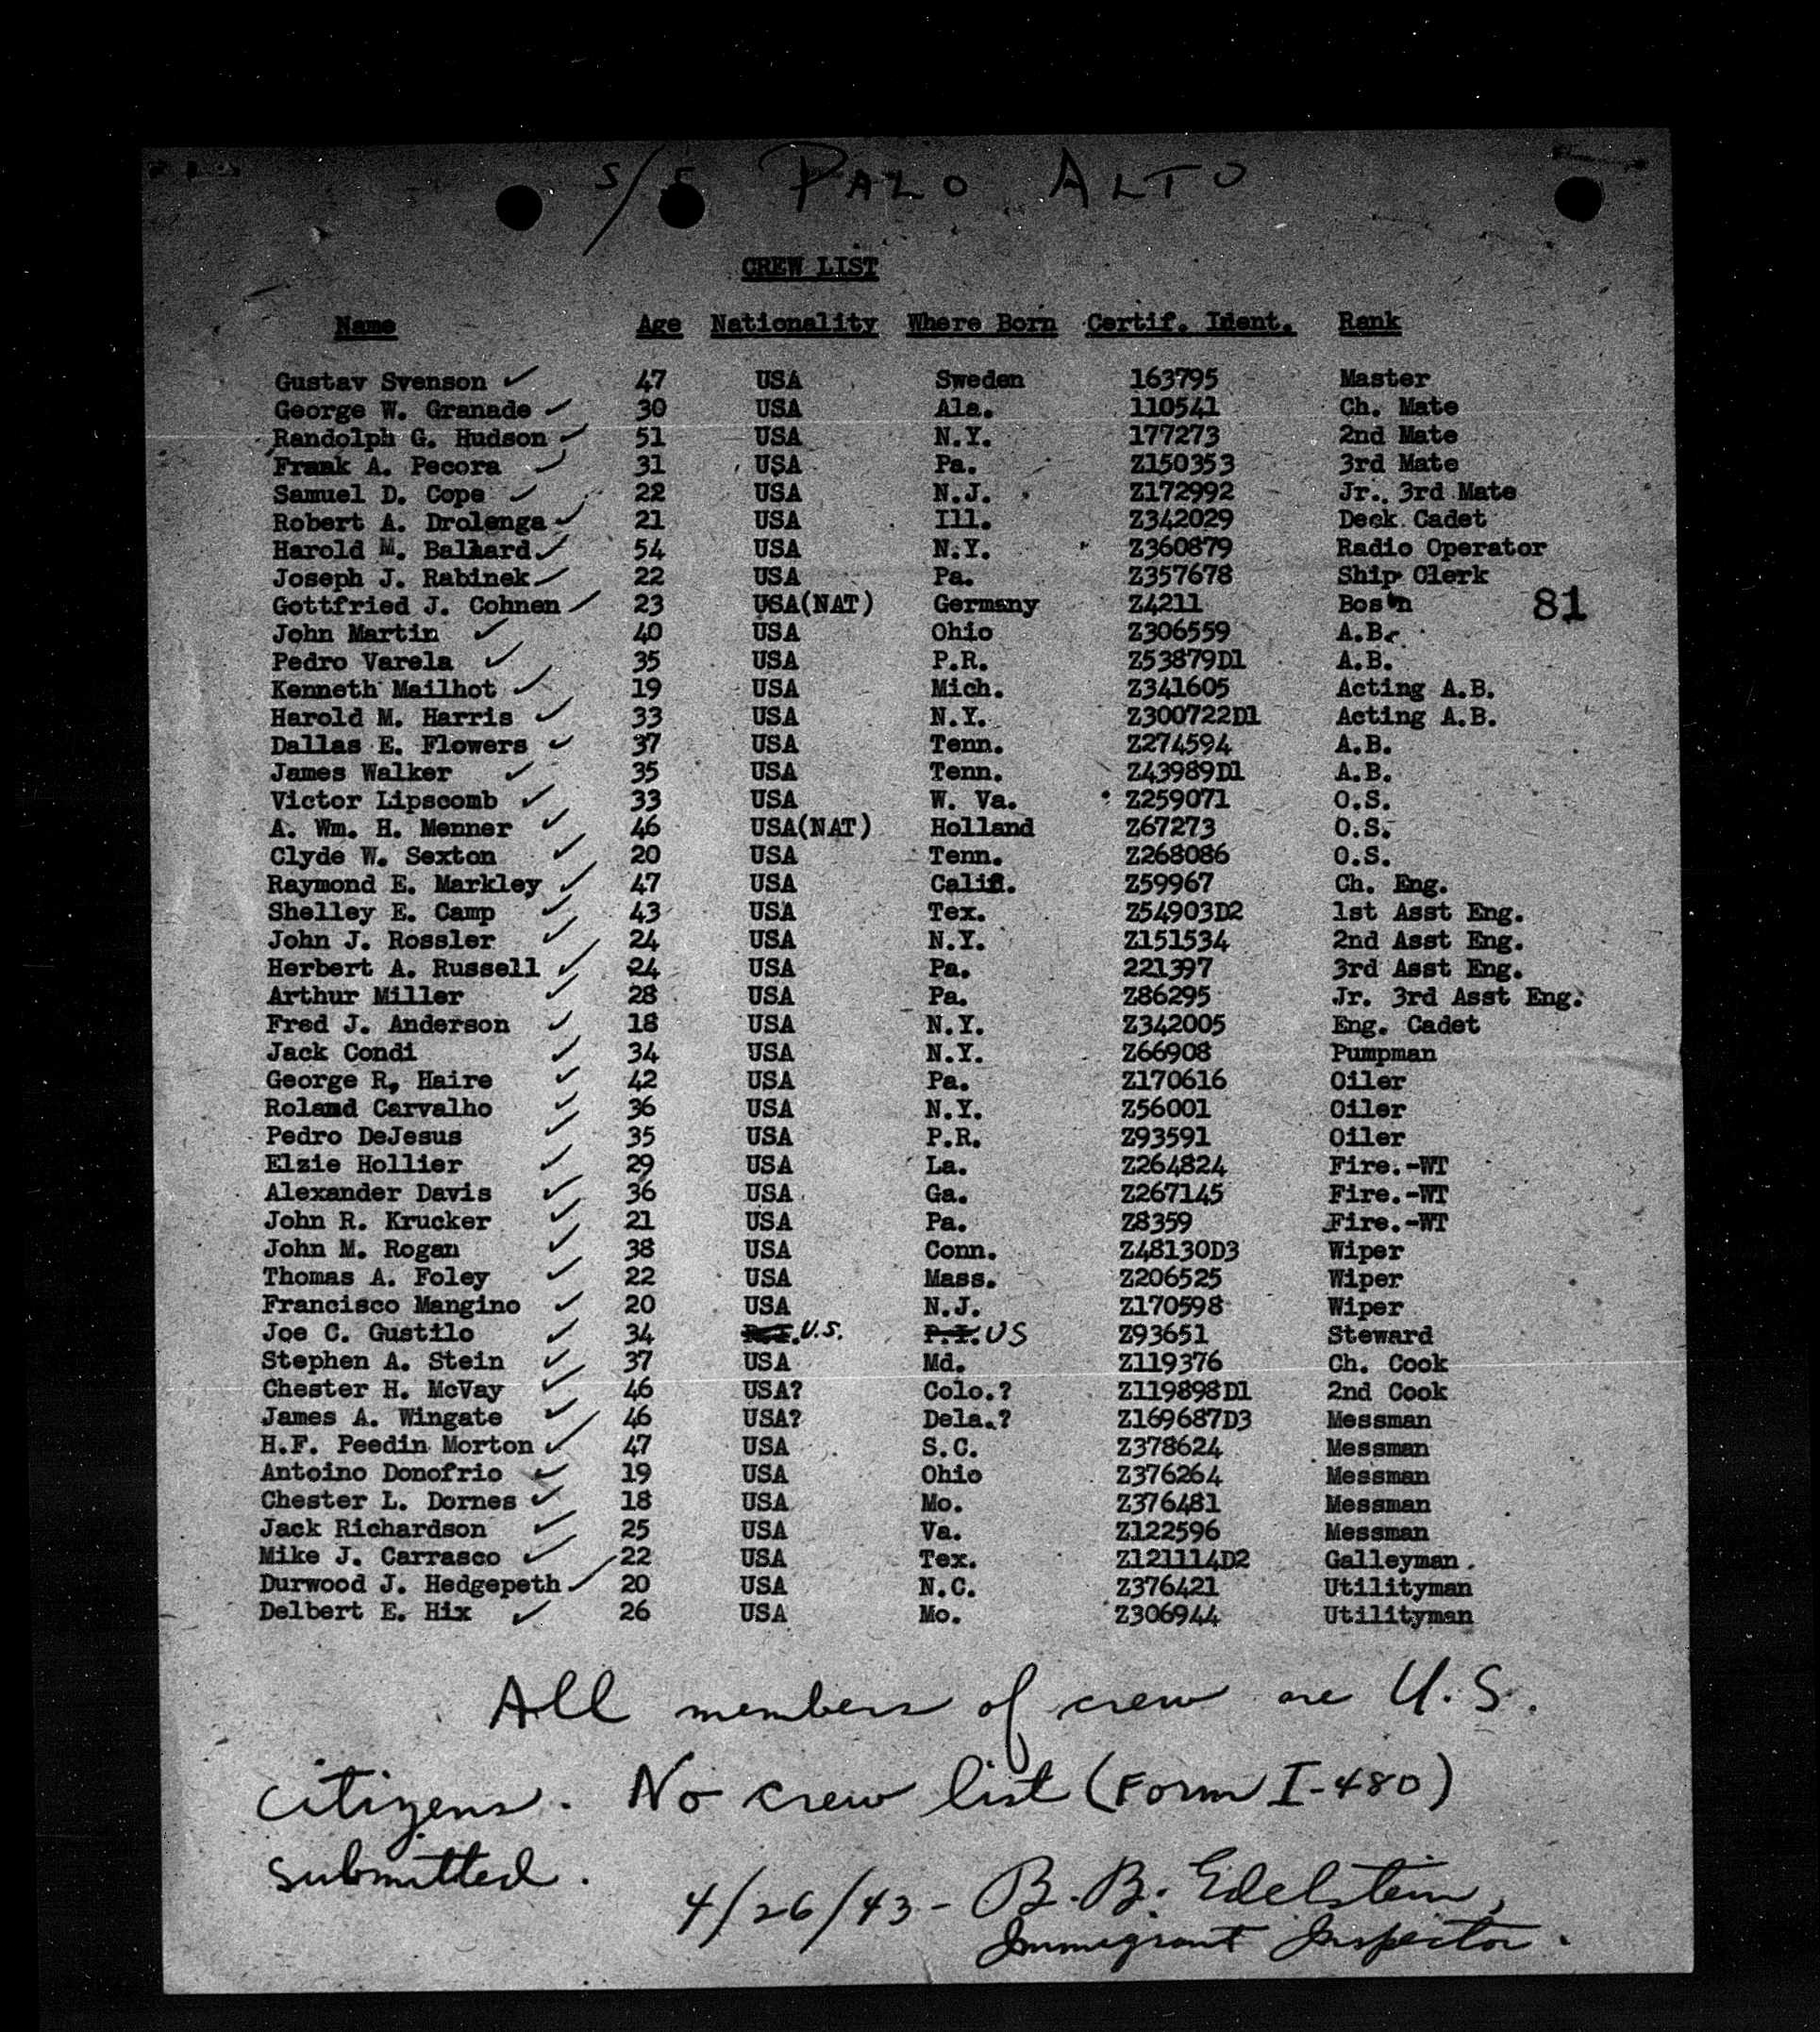 S/S PALO ALTO
CREW LIST
Name Age Nationality Where Born Certif. Ident. Rank
Gustav Svenson ✓ 47 USA Sweden 163795 Master
George W. Granade ✓ 30 USA Ala. 110541 Ch. Mate
Randolph G. Hudson ✓ 51 USA N.Y. 177273 2nd Mate
Frank A. Pecora ✓ 31 USA Pa. Z150353 3rd Mate
Samuel D. Cope ✓ 22 USA N.J. Z172992 Jr. 3rd Mate
Robert A. Drolenga ✓ 21 USA Ill. Z342029 Deck Cadet
Harold M. Balhard ✓ 54 USA N.Y. Z360879 Radio Operator
Joseph J. Rabinek ✓ 22 USA Pa. Z357678 Ship Clerk
Gottfried J. Cohnen ✓ 23 USA(NAT) Germany Z4211 Bos'n 81
John Martin ✓ 40 USA Ohio Z306559 A.B.
Pedro Varela ✓ 35 USA P.R. Z53879D1 A.B.
Kenneth Mailhot ✓ 19 USA Mich. Z341605 Acting A.B.
Harold M. Harris ✓ 33 USA N.Y. Z300722D1 Acting A.B.
Dallas E. Flowers ✓ 37 USA Tenn. Z274594 A.B.
James Walker ✓ 35 USA Tenn. Z43989D1 A.B.
Victor Lipscomb ✓ 33 USA W. Va. Z259071 O.S.
A. Wm. H. Menner ✓ 46 USA(NAT) Holland Z67273 O.S.
Clyde W. Sexton ✓ 20 USA Tenn. Z268086 O.S.
Raymond E. Markley ✓ 47 USA Calif. Z59967 Ch. Eng.
Shelley E. Camp ✓ 43 USA Tex. Z54903D2 1st Asst Eng.
John J. Rossler ✓ 24 USA N.Y. Z151534 2nd Asst Eng.
Herbert A. Russell ✓ 24 USA Pa. 221397 3rd Asst Eng.
Arthur Miller ✓ 28 USA Pa. Z86295 Jr. 3rd Asst Eng.
Fred J. Anderson ✓ 18 USA N.Y. Z342005 Eng. Cadet
Jack Condi ✓ 34 USA N.Y. Z66908 Pumpman
George R, Haire ✓ 42 USA Pa. Z170616 Oiler
Roland Carvalho ✓ 36 USA N.Y. Z56001 Oiler
Pedro DeJesus ✓ 35 USA P.R. Z93591 Oiler
Elzie Hollier ✓ 29 USA La. Z264824 Fire.-WT
Alexander Davis ✓ 36 USA Ga. Z267145 Fire.-WT
John R. Krucker ✓ 21 USA Pa. Z8359 Fire.-WT
John M. Rogan ✓ 38 USA Conn. Z48130D3 Wiper
Thomas A. Foley ✓ 22 USA Mass. Z206525 Wiper
Francisco Mangino ✓ 20 USA N.J. Z170598 Wiper
Joe C. Gustilo ✓ 34 U.S. P.I. US Z93651 Steward
Stephen A. Stein ✓ 37 USA Md. Z119376 Ch. Cook
Chester H. McVay ✓ 46 USA? Colo.? Z119898D1 2nd Cook
James A. Wingate ✓ 46 USA? Dela.? Z169687D3 Messman
H.F. Peedin Morton ✓ 47 USA S.C. Z378624 Messman
Antoino Donofrio ✓ 19 USA Ohio Z376264 Messman
Chester L. Dornes ✓ 18 USA Mo. Z376481 Messman
Jack Richardson ✓ 25 USA Va. Z122596 Messman
Mike J. Carrasco ✓ 22 USA Tex. Z121114D2 Galleyman
Durwood J. Hedgepeth ✓ 20 USA N.C. Z376421 Utilityman
Delbert E. Hix ✓ 26 USA Mo. Z306944 Utilityman
All members of crew are U.S.
citizens. No crew list (Form I-480)
submitted.
4/26/43 - B. B. Edelstein,
Immigrant Inspector.